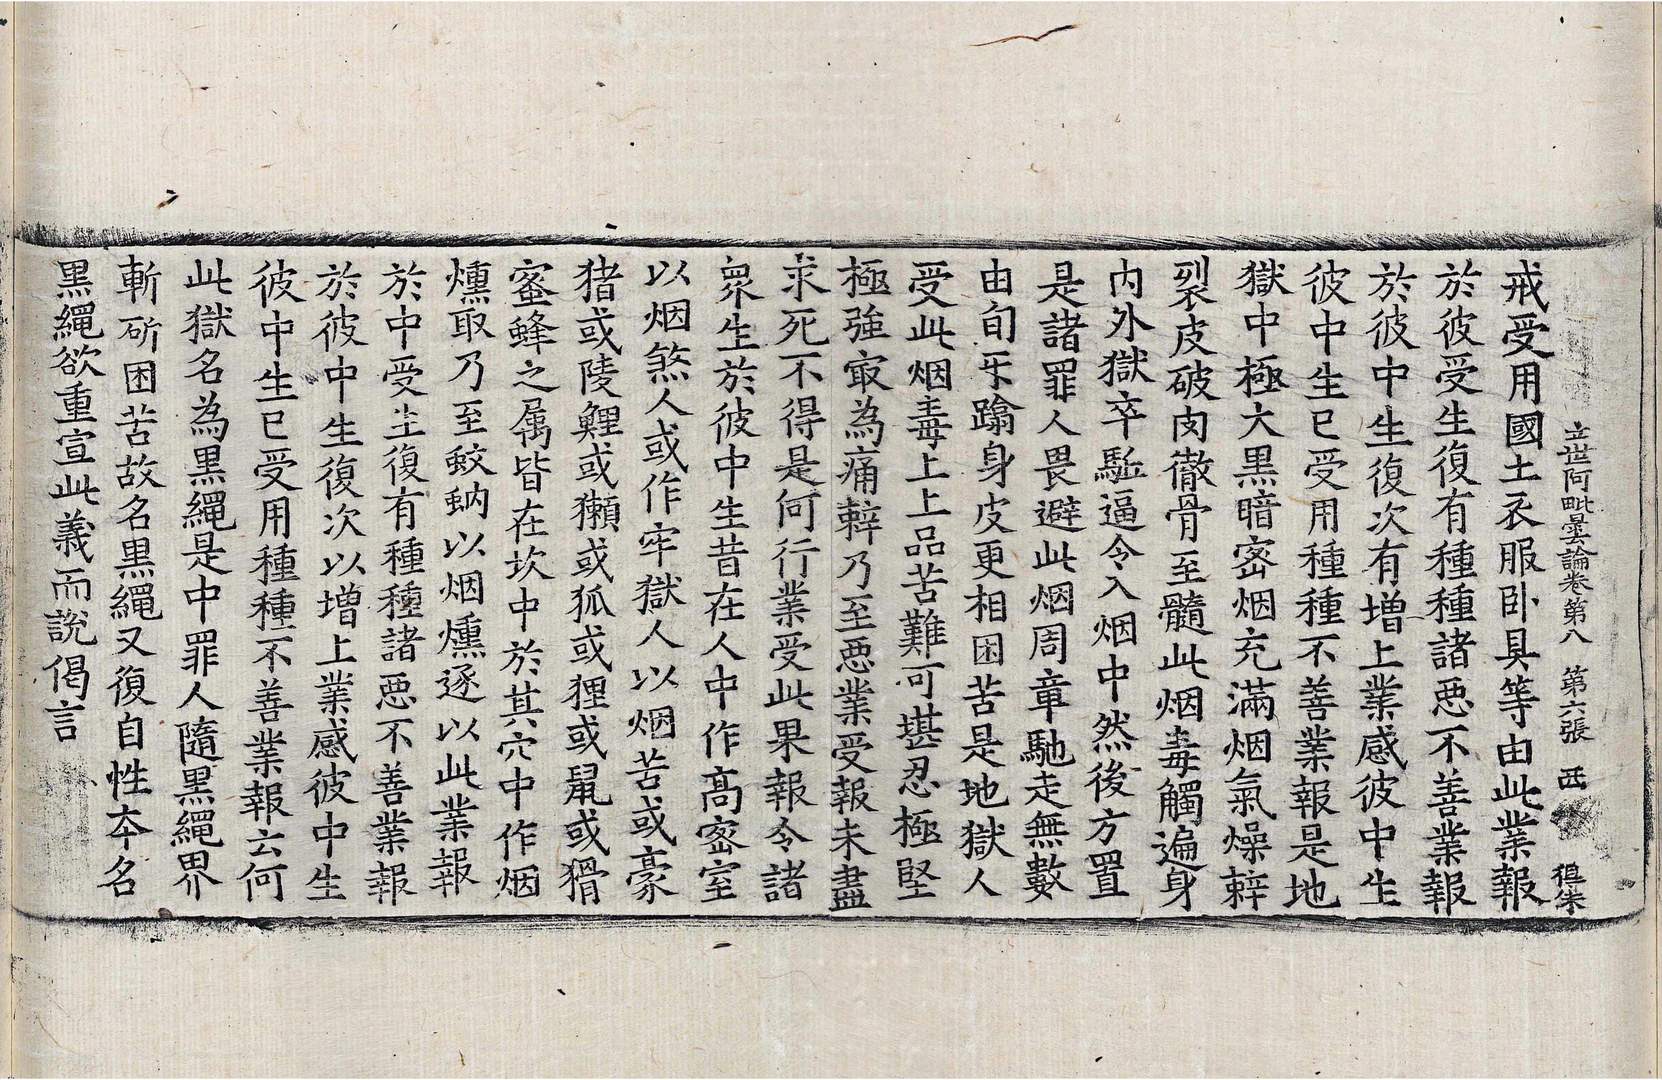 立世阿毗曇論卷第八 第六張 𠀍
戒受用國土衣服卧具等由此業報
於彼受生復有種種諸惡不善業報
於彼中生復次有增上業感彼中生
彼中生已受用種種不善業報是地
獄中極大黑暗宻烟充滿烟氣燥辢
裂皮破肉徹骨至髓此烟毒觸遍身
內外獄卒駈逼令入烟中然後方置
是諸罪人畏避此烟周章馳走無數
由旬牙踰身皮更相困苦是地獄人
受此烟毒上上品苦難可堪忍極堅
極強㝡為痛辢乃至惡業受報未盡
求死不得是何行業受此果報令諸
衆生於彼中生昔在人中作髙宻室
以烟煞人或作牢獄人以烟苦或豪
猪或陵鯉或獺或狐或狸或鼠或猾
蜜蜂之属皆在坎中於其穴中作烟
燻取乃至蛟蚋以烟燻逐以此業報
於中受生復有種種諸惡不善業報
於彼中生復次以增上業感彼中生
彼中生已受用種種不善業報云何
此獄名為黑繩是中罪人隨黑繩界
斬斫困苦故名黑繩又復自性夲名
黑繩欲重宣此義而說偈言